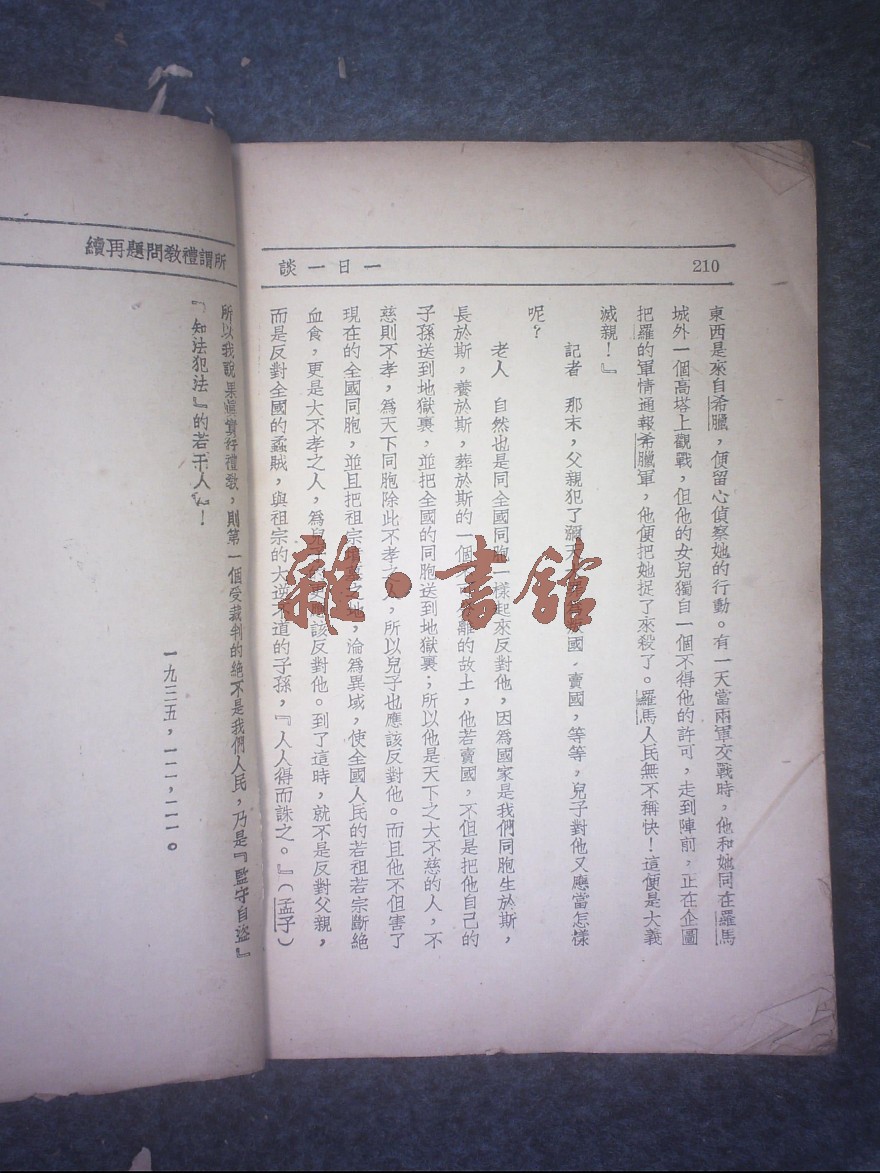 210
一日一談
東西是來自希臘，便留心偵察她的行動。有一天當兩軍交戰時，他和她同在羅馬
城外一個高塔上觀戰，但他的女兒獨自一個不得他的許可，走到陣前，正在企圖
把羅的軍情通報希臘軍，他便把她捉了來殺了。羅馬人民無不稱快！這便是大義
滅親！』
記者　那末，父親犯了瀰天國，賣國，等等，兒子對他又應當怎樣
呢？
老人　自然也是同全國同胞一樣起來反對他，因為國家是我們同胞生於斯，
長於斯，養於斯，葬於斯的一個離的故土，他若賣國，不但是把他自己的
子孫送到地獄裏，並把全國的同胞送到地獄裏；所以他是天下之大不慈的人，不
慈則不孝，為天下同胞除此不孝，所以兒子也應該反對他。而且他不但害了
現在的全國同胞，並且把祖宗地，淪為異域，使全國人民的若祖若宗斷絕
血食，更是大不孝之人，為兒該反對他。到了這時，就不是反對父親，
而是反對全國的蟊賊，與祖宗的大逆道的子孫，『人人得而誅之。』（孟子）
所謂禮教問題再續
所以我說果眞實行禮教，則第一個受裁判的絕不是我們人民，乃是『監守自盜』
『知法犯法』的若干人！
一九三五，一一，一一。
雜·書館